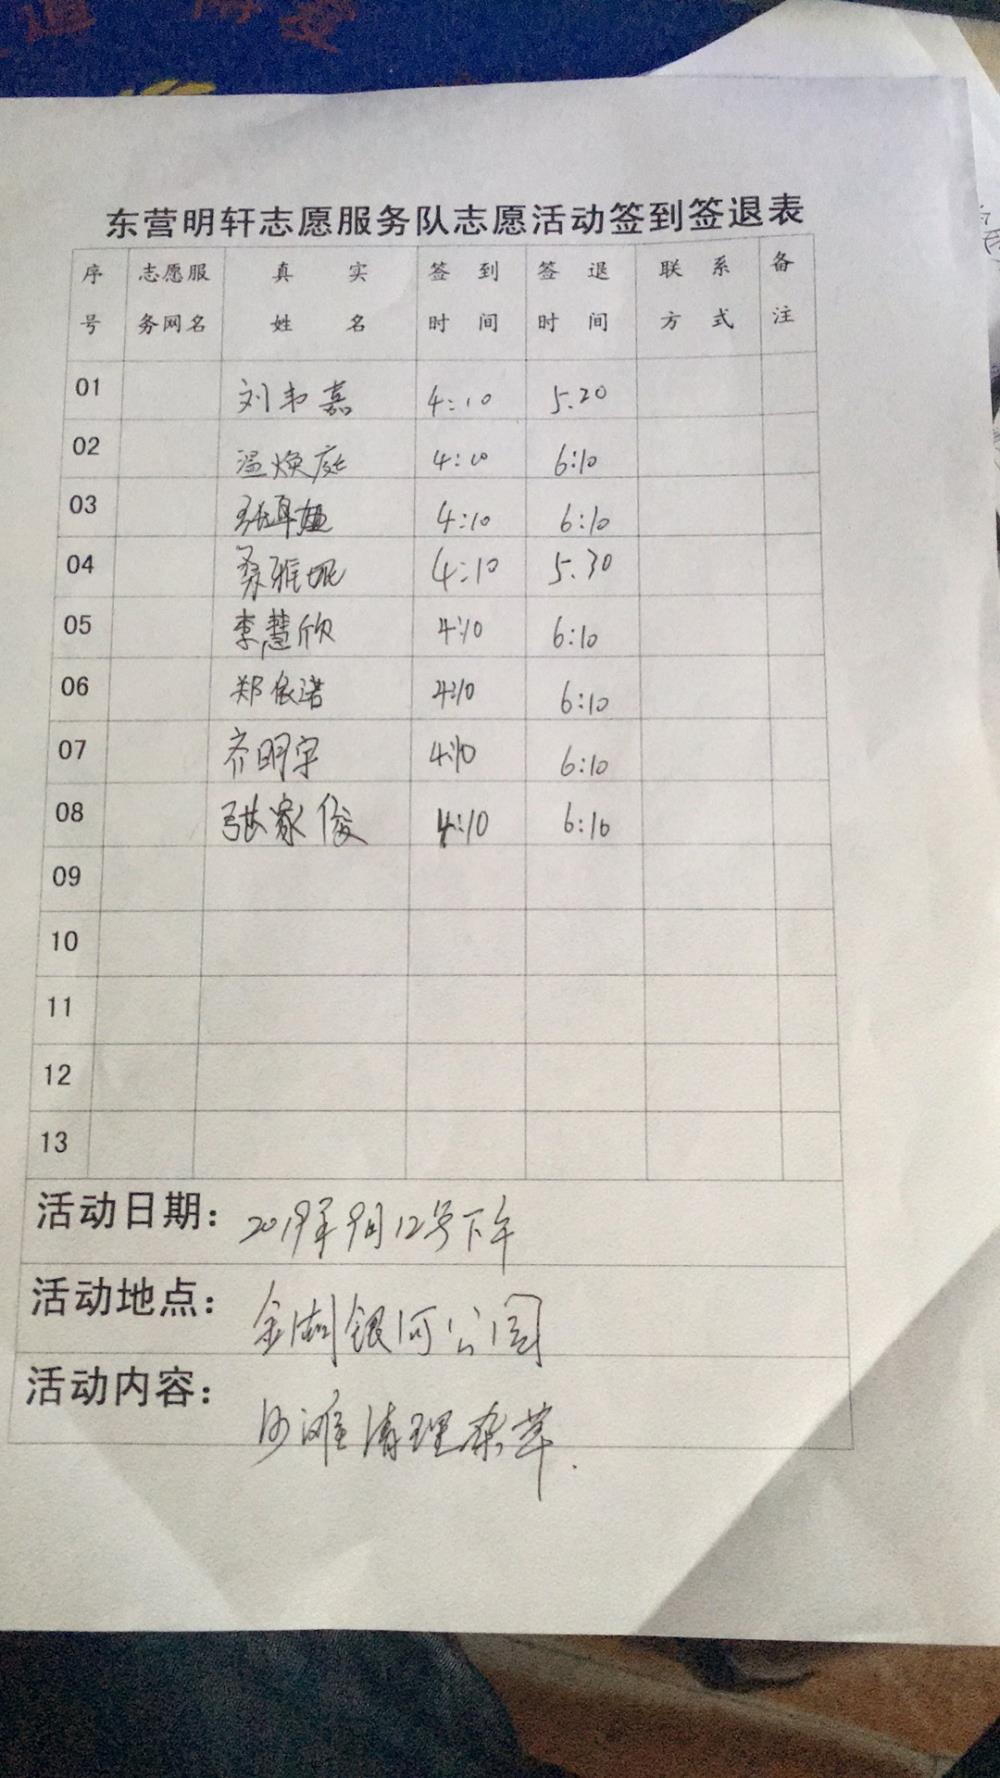 东营明轩志愿服务队志愿活动签到签退表
序号 志愿服务网名 真实姓名 签到时间 签退时间 联系方式 备注
01 刘韦嘉 4:10 5.20
02 温焕庭 4:10 6:10
03 4:10 6:10
04 桑雅妮 4:10 5.30
05 李慧欣 4:10 6:10
06 郑依诺 4:10 6:10
07 齐明宇 4:10 6:10
08 张家俊 4:10 6:10
09
10
11
12
13
活动日期: 2019年9月12号下午
活动地点: 金湖银河公园
活动内容: 沙滩清理杂草.